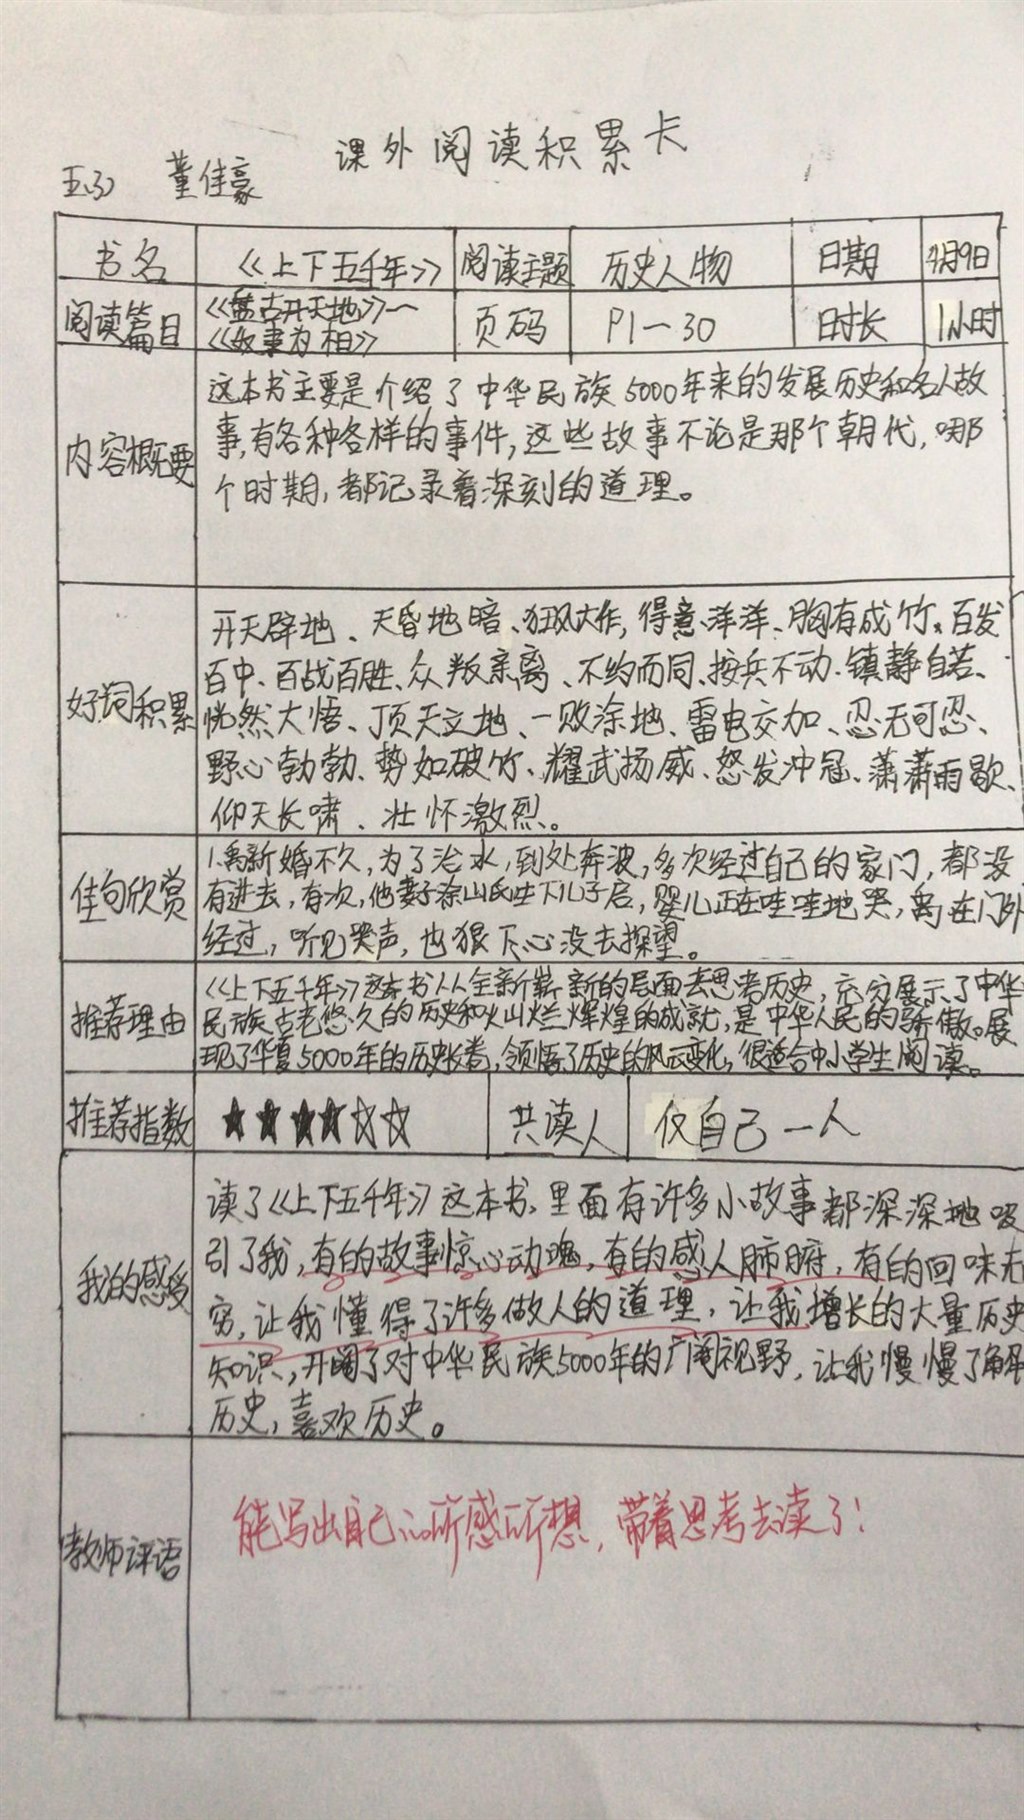 课外阅读积累卡
五(3) 董佳豪
书名 《上下五千年》 阅读主题 历史人物 日期 4月9日
阅读篇目 《盘古开天地》一 页码 P1一30 时长 1小时
《奴隶为相》
内容概要
这本书主要是介绍了中华民族5000年来的发展历史和名人故
事,有各种各样的事件,这些故事不论是那个朝代,哪
个时期,都记录着深刻的道理。
好词积累
开天辟地、天昏地暗、狂风大作,得意洋洋、胸有成竹、百发
百中、百战百胜、众叛亲离、不约而同、按兵不动、镇静自若、
恍然大悟、顶天立地、一败涂地、雷电交加、忍无可忍、
野心勃勃、势如破竹、耀武扬威、怒发冲冠、潇潇雨歇、
仰天长啸、壮怀激烈。
佳句欣赏
1.禹新婚不久,为了治水,到处奔波,多次经过自己的家门,都没
有进去,有次,他妻子涂山氏生下儿子启,婴儿正在哇哇地哭,禹在门外
经过,听见哭声,也狠下心没去探望。
推荐理由
《上下五千年》这本书从全新崭新的层面去思考历史,充分展示了中华
民族古老悠久的历史和灿烂辉煌的成就,是中华人民的骄傲。展
现了华夏5000年的历史长卷,领悟了历史的风云变化,很适合中小学生阅读。
推荐指数 ★★★★☆☆ 共读人 仅自己一人
我的感受
读了《上下五千年》这本书,里面有许多小故事都深深地吸
引了我,有的故事惊心动魄,有的感人肺腑,有的回味无
穷,让我懂得了许多做人的道理,让我增长的大量历史
知识,开阔了对中华民族5000年的广阔视野,让我慢慢了解
历史,喜欢历史。
教师评语
能写出自己的所感所想,带着思考去读了!